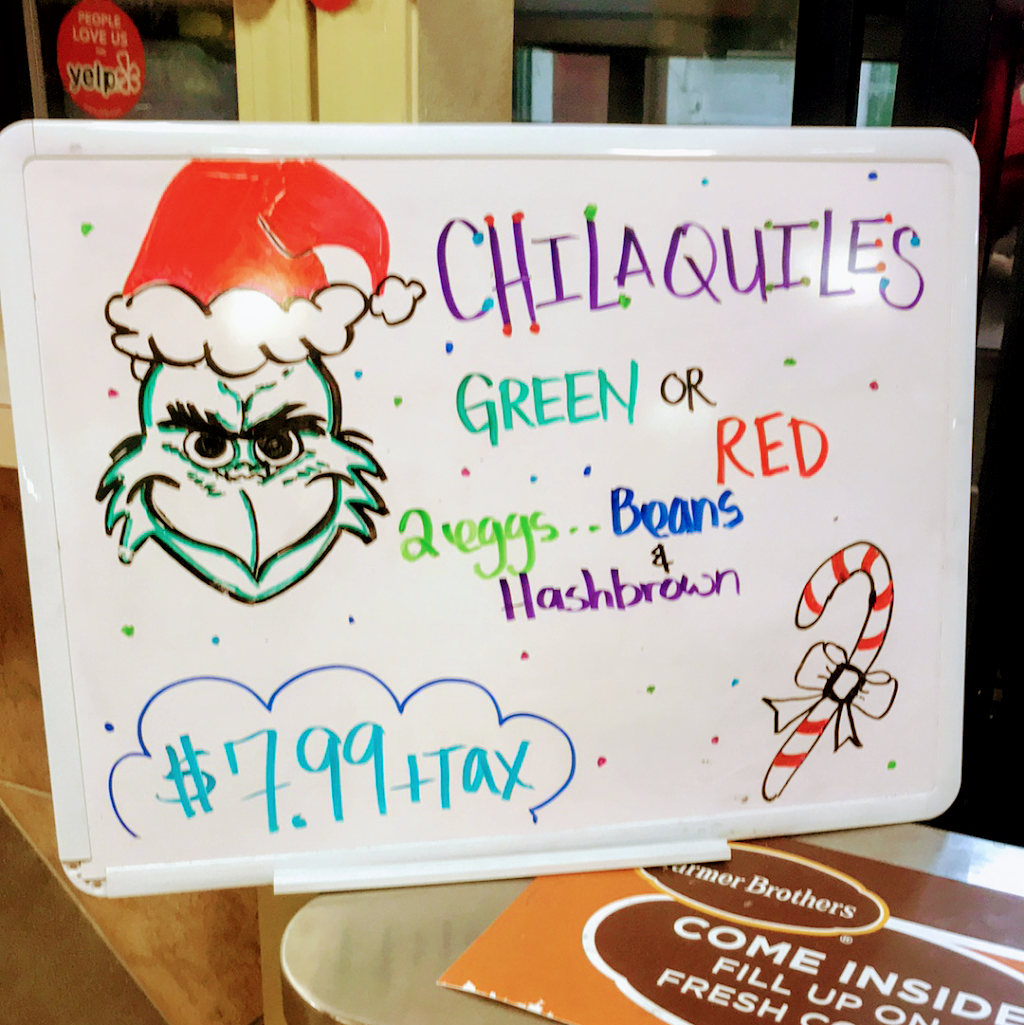 PEOPLE
LOVE US
yelp
CHILAQUILES
GREEN OR
RED
2 eggs.. Beans
&
Hashbrown
$7.99 +Tax
Farmer Brothers
®
COME INSIDE
FILL UP ON
FRESH